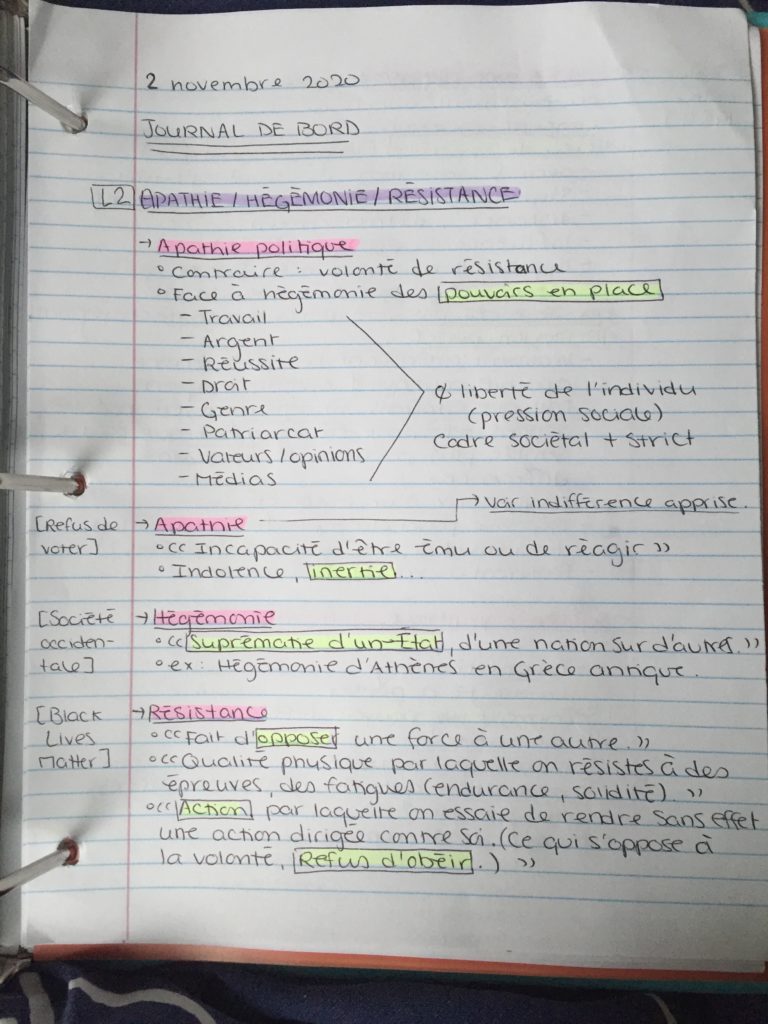 2 novembre 2020
JOURNAL DE BORD
L2 APATHIE / HÉGÉMONIE / RÉSISTANCE
→ Apathie politique
° Contraire : volonté de résistance
° Face à hégémonie des pouvoirs en place
- Travail
- Argent
- Réussite
- Droit
- Genre
- Patriarcat
- Valeurs / opinions
- Médias
¢ liberté de l'individu
(pression sociale)
Cadre sociétal + strict
→ Voir indifférence apprise.
[Refus de
voter]
→ Apathie
° << Incapacité d'être ému ou de réagir >>
° Indolence, inertie...
[Société
occiden-
tale]
→ Hégémonie
° << Suprématie d'un État, d'une nation sur d'autres. >>
° ex : Hégémonie d'Athènes en Grèce antique.
[Black
Lives
Matter]
→ Résistance
° << Fait d'opposer une force à une autre. >>
° << Qualité physique par laquelle on résistes à des
épreuves, des fatigues (endurance, solidité). >>
° << Action par laquelle on essaie de rendre sans effet
une action dirigée contre soi. (Ce qui s'oppose à
la volonté, Refus d'obéir.) >>